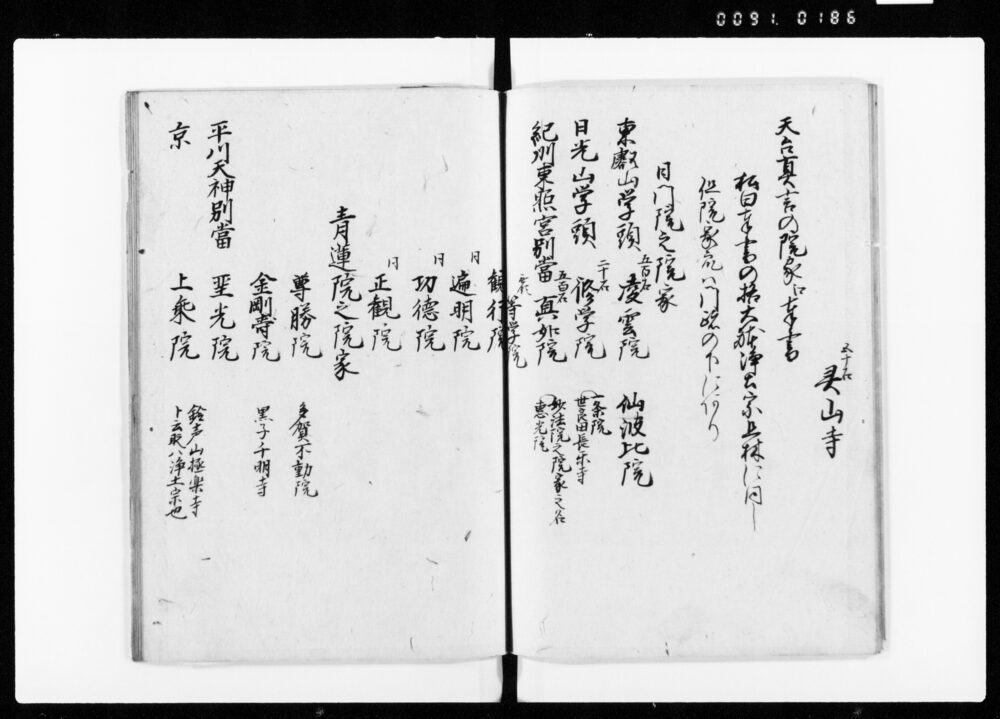 0091 0186
五十石 灵山寺
天台真言の院家江奉書
松白奉書の搭大躰浄土宗丘林ニ同し
但院家宛ハ門跡の下ニ有り
日門院之院家
東叡山学頭 五百石 凌雲院 仙波比院
日光山学頭 二十石 修学院 一条院 世良田長楽寺
紀州東照宮別當 五百石 真如院 妙法院之院家之谷 恵光院
等学院
観行院
同 遍明院
同 功徳院
同 正観院
青蓮院之院家
尊勝院 多賀不動院
金剛寿院 黒子千明寺
平川天神別當 聖光院
京 上乗院 鈴声山極楽寺ト云取ハ浄土宗也